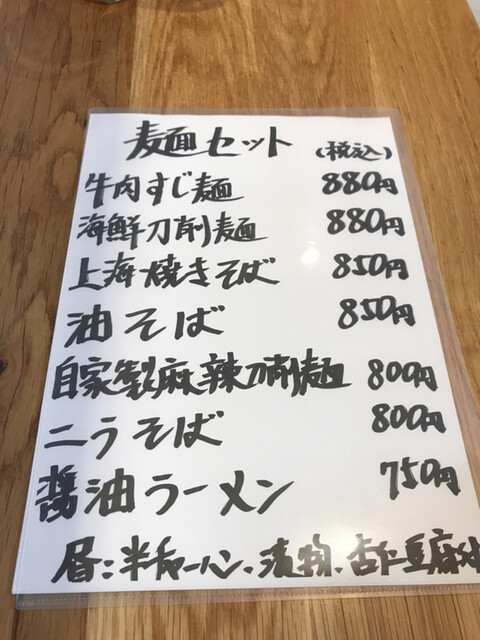 麺セット (税込)
牛肉すじ麺 880円
海鮮刀削麺 880円
上海焼きそば 850円
油そば 850円
自家製麻辣刀削麺 800円
ニラそば 800円
醤油ラーメン 750円
昼:半チャーハン、漬物、杏仁豆腐付